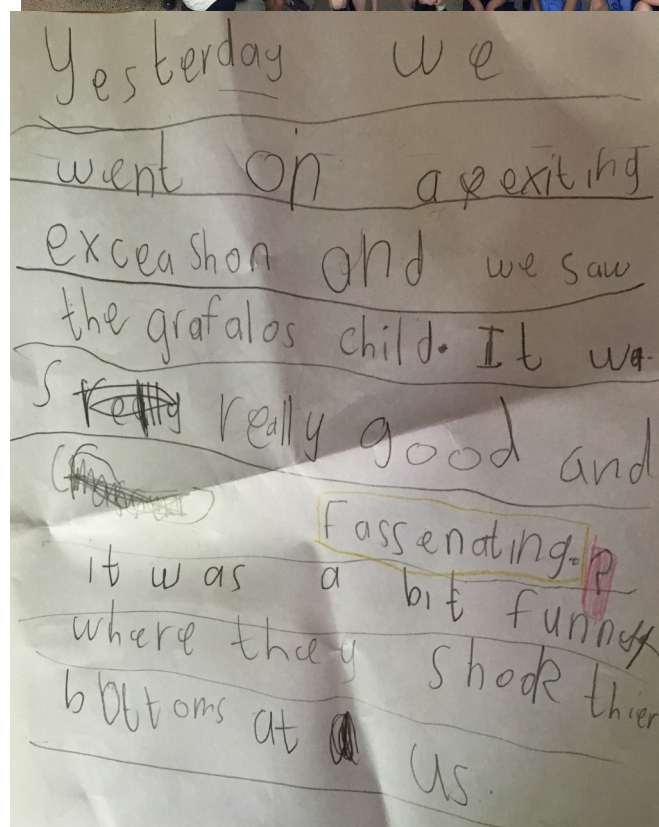 Yesterday we
went on a exiting
exceashon and we saw
the grafalos child. It wa
s really good and
Fassenating.
it was a bit funny
where they shook thier
bottoms at us.